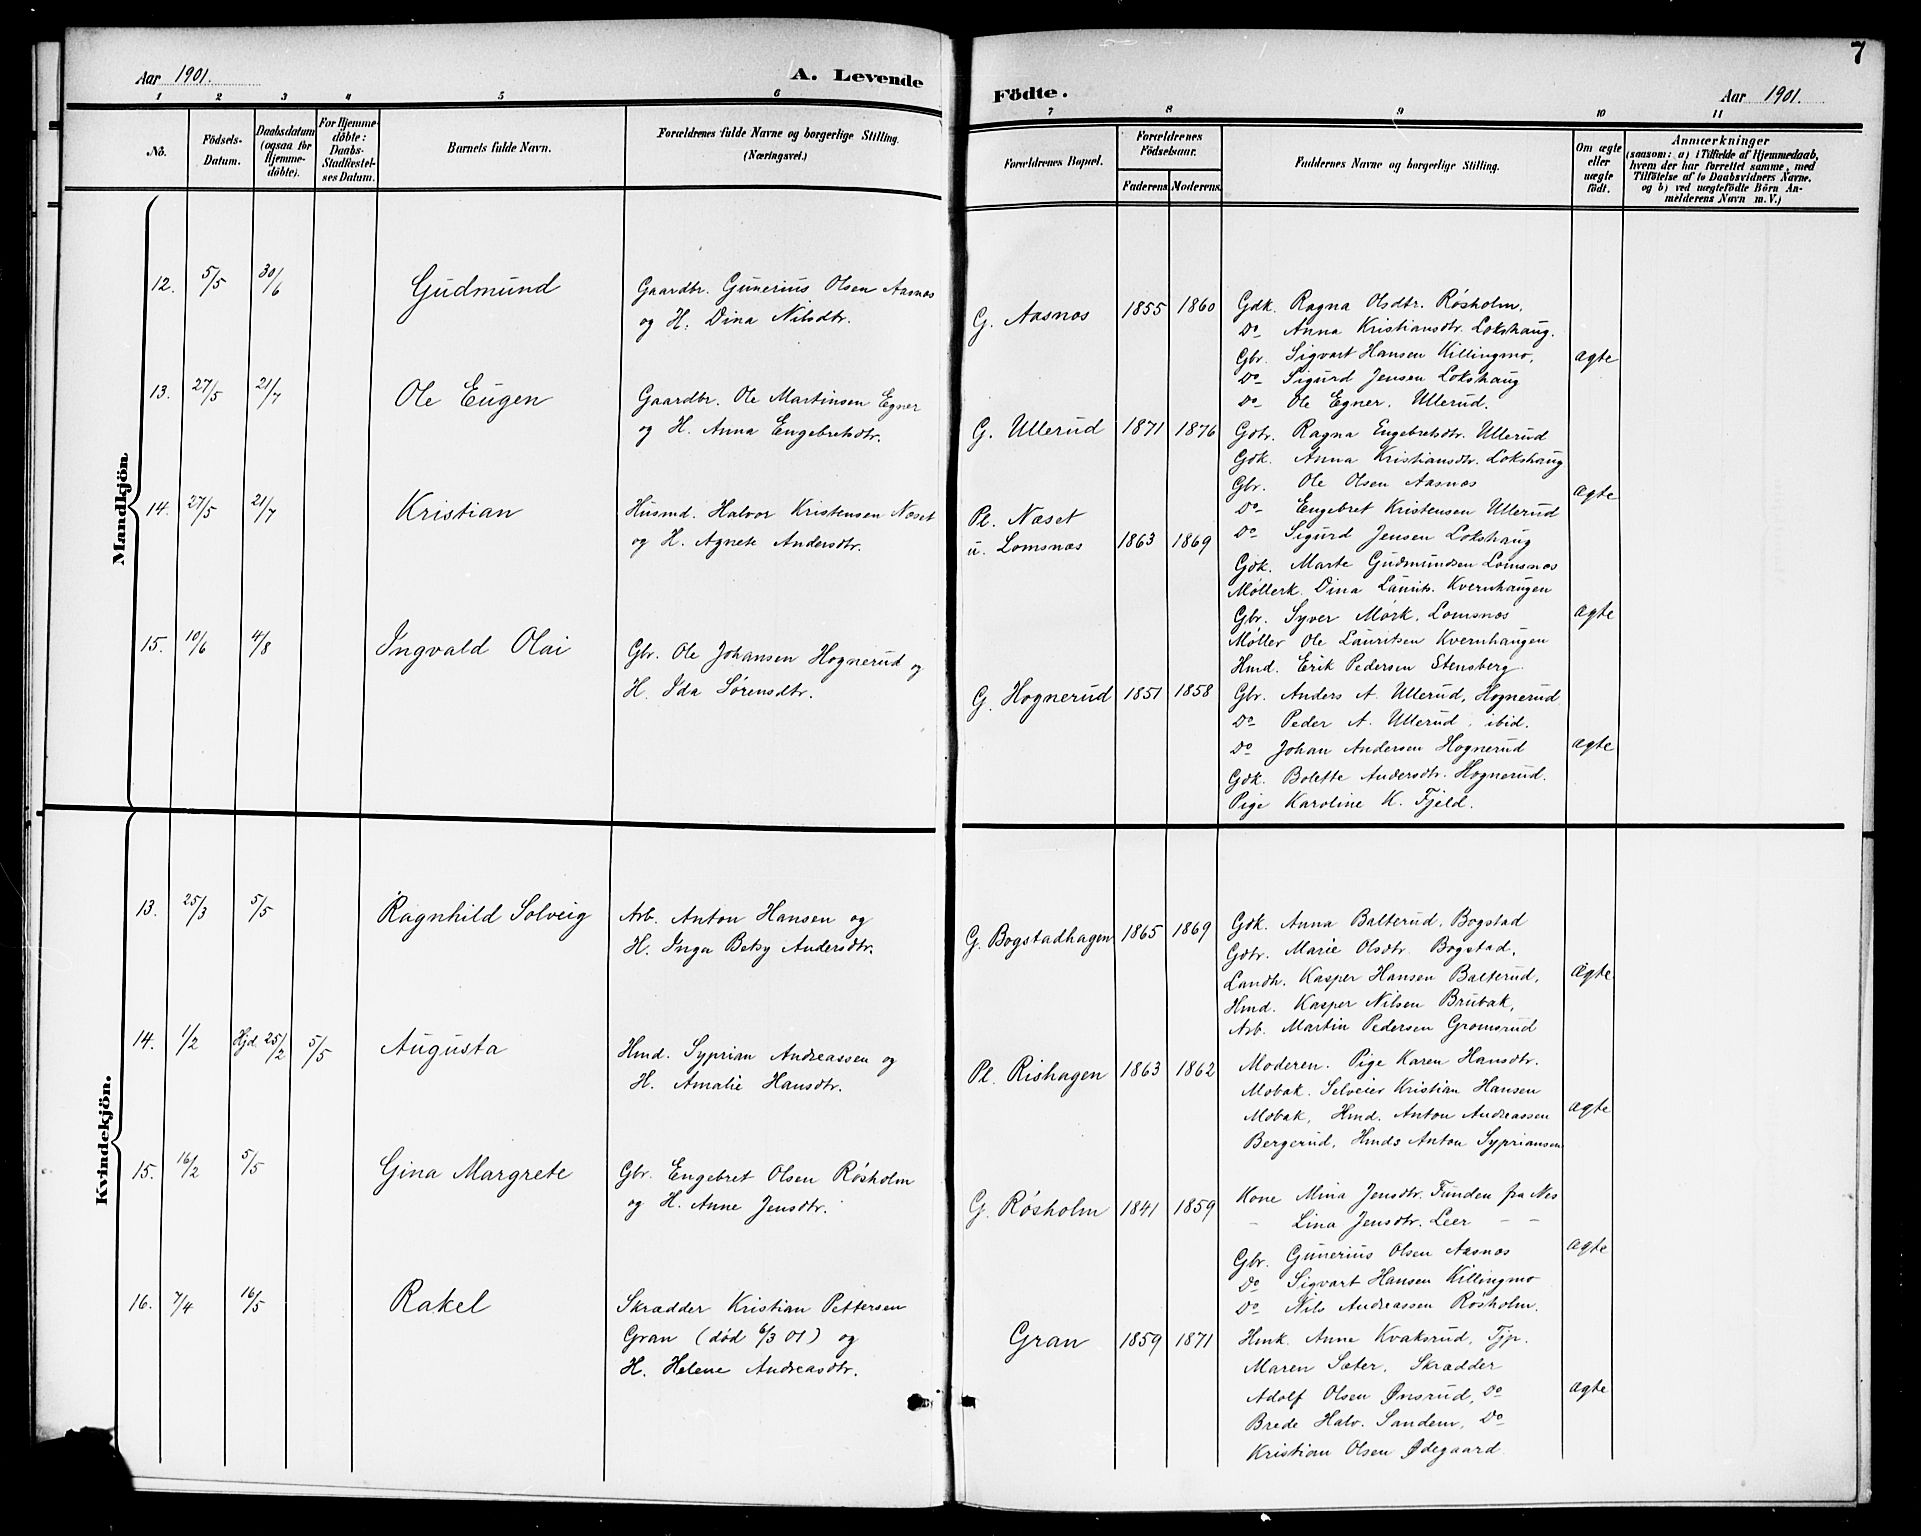 7
Aar 1901.
A. Levende
Födte.
Aar 1901.
1 2 3 4 5 6 7 8 9 10 11
No.
Födsels-
Datum.
Daabsdatum
(ogsaa for
Hjemme-
döbte).
For Hjemme-
döbte:
Daabs-
Stadfæstel-
ses Datum.
Barnets fulde Navn.
Forældrenes fulde Navne og borgerlige Stilling.
(Næringsvei.)
Forældrenes Bopæl.
Forældrenes
Födselsaar.
Faderens. Moderens.
Faddernes Navne og borgerlige Stilling.
Om ægte
eller
uægte
födt.
Anmærkninger
(saasom: a) i Tilfælde af Hjemmedaab,
hvem der har forrettet samme, med
Tilföielse af to Daabsvidners Navne.
og b) ved uægtefödte Börn An-
melderens Navn m. V.)
Mandkjön.
12. 5/5 30/6 Gudmund
Gaardbr. Gunerius Olsen Aasnæs
og H. Dina Nilsdtr.
G. Aasnæs 1855 1860
Gdk. Ragna Olsdtr. Røsholm.
Do Anna Kristiansdtr. Lokshaug.
Gbr. Sigvart Hansen Killingmo,
Do Sigurd Jensen Lokshaug
Do Ole Egner. Ullerud.
ægte
13. 27/5 21/7 Ole Eugen
Gaardbr. Ole Martinsen Egner
og H. Anna Engebretsdtr.
G. Ullerud 1871 1876
Gdtr. Ragna Engebretsdtr. Ullerud
Gdk. Anna Kristiansdtr. Lokshaug
Gbr. Ole Olsen Aasnæs
Do Engebret Kristensen Ullerud
Do Sigurd Jensen Lokshaug
ægte
14. 27/5 21/7 Kristian
Husmd. Halvor Kristensen Næset
og H. Agnete Andersdtr.
Pl. Næset
u. Lomsnæs 1863 1869
Gdk. Marte Gudmundsen Lomsnæs
Møllerk. Dina Laurits. Kvernhaugen
Gbr. Syver Mørk, Lomsnæs
Møller Ole Lauritsen Kvernhaugen
Hmd. Erik Pedersen Stensberg.
ægte
15. 10/6 4/8 Ingvald Olai
Gbr. Ole Johansen Hognerud og
H. Ida Sørensdtr.
G. Hognerud 1851 1858
Gbr. Anders A. Ullerud, Hognerud
Do Peder A. Ullerud, ibid.
Do Johan Andersen Hognerud
Gdk. Bolette Andersdtr. Hognerud.
Pige Karoline K. Fjeld.
ægte
Kvindekjön.
13. 25/3 5/5 Ragnhild Solveig
Arb. Anton Hansen og
H. Inga Betsy Andersdtr.
G. Bogstadhagen 1865 1869
Gdk. Anna Balterud, Bogstad
Gdtr. Marie Olsdtr. Bogstad,
Landh. Kasper Hansen Balterud,
Hmd. Kasper Nilsen Brubak,
Arb. Martin Pedersen Gromsrud
Ægte
14. 1/2 Hjd. 25/2 5/5 Augusta
Hmd. Syprian Andreassen og
H. Amalie Hansdtr.
Pl. Rishagen 1863 1862
Moderen. Pige Karen Hansdtr.
Mobak. Selveier Kristian Hansen
Mobak, Hmd. Anton Andreassen
Bergerud, Hmds Anton Sypriansen
ægte
15. 16/2 5/5 Gina Margrete
Gbr. Engebret Olsen Røsholm
og H. Anne Jensdtr.
G. Røsholm 1841 1859
Kone Mina Jensdtr. Funden fra Nes
- Lina Jensdtr. Leer - -
Gbr. Gunerius Olsen Aasnæs
Do Sigvart Hansen Killingmo
Do Nils Andreassen Røsholm.
ægte
16. 7/4 16/5 Rakel
Skrædder Kristian Pettersen
Gran (død 6/3 01) og
H. Helene Andreasdtr.
Gran 1859 1871
Hmk. Anne Kvaksrud, Tjp.
Maren Sæter, Skrædder
Adolf Olsen Ønsrud, Do
Brede Halv. Sandem, Do
Kristian Olsen Ødegaard
ægte